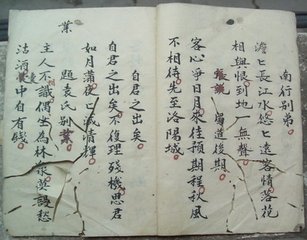 南行别弟
澹〻長江水悠〻遠客情落花
相與恨到地一無聲
蜀道後期
客心爭日月來往預期程秋風
不相待先至洛陽城
自君之出矣
自君之出矣不復理殘機思君
如月滿夜〻減清輝
題袁氏别業
主人不識偶坐為林泉莫謾愁
沽酒囊中自有錢
業